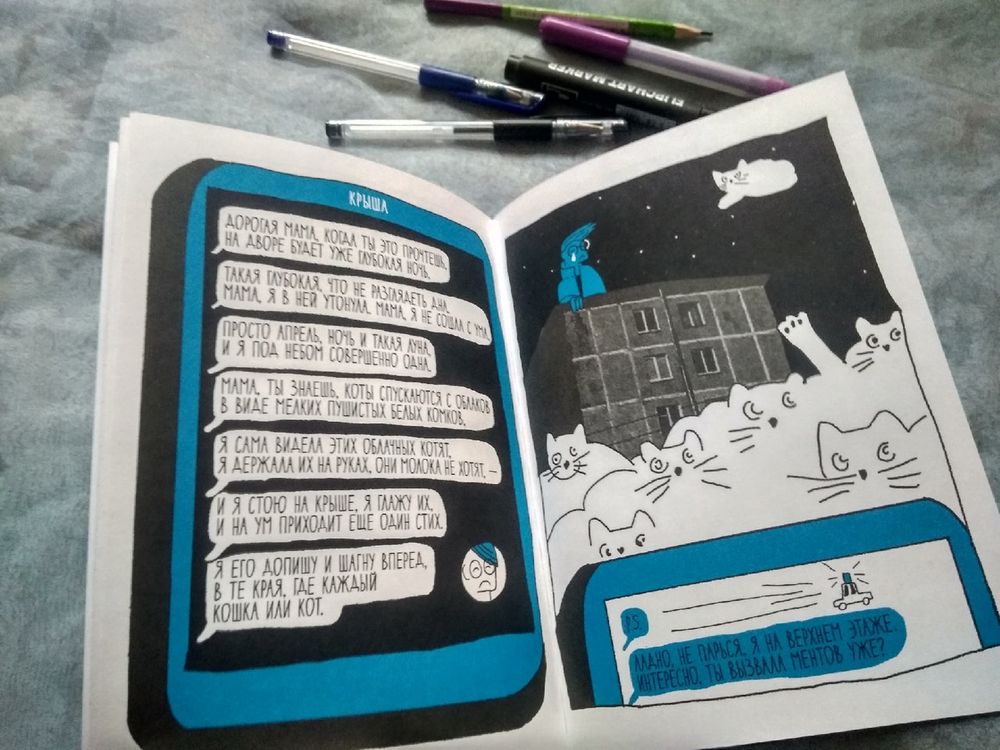 FLIPCHART MARKER
КРЫША
ДОРОГАЯ МАМА, КОГДА ТЫ ЭТО ПРОЧТЕШЬ,
НА ДВОРЕ БУДЕТ УЖЕ ГЛУБОКАЯ НОЧЬ.
ТАКАЯ ГЛУБОКАЯ, ЧТО НЕ РАЗГЛЯДЕТЬ ДНА,
МАМА, Я В НЕЙ УТОНУЛА. МАМА, Я НЕ СОШЛА С УМА,
ПРОСТО АПРЕЛЬ, НОЧЬ И ТАКАЯ ЛУНА,
И Я ПОД НЕБОМ СОВЕРШЕННО ОДНА.
МАМА, ТЫ ЗНАЕШЬ, КОТЫ СПУСКАЮТСЯ С ОБЛАКОВ
В ВИДЕ МЕЛКИХ ПУШИСТЫХ БЕЛЫХ КОМКОВ,
Я САМА ВИДЕЛА ЭТИХ ОБЛАЧНЫХ КОТЯТ,
Я ДЕРЖАЛА ИХ НА РУКАХ, ОНИ МОЛОКА НЕ ХОТЯТ, –
И Я СТОЮ НА КРЫШЕ, Я ГЛАЖУ ИХ,
И НА УМ ПРИХОДИТ ЕЩЕ ОДИН СТИХ.
Я ЕГО ДОПИШУ И ШАГНУ ВПЕРЕД,
В ТЕ КРАЯ, ГДЕ КАЖДЫЙ
КОШКА ИЛИ КОТ.
P.S.
ЛАДНО, НЕ ПАРЬСЯ, Я НА ВЕРХНЕМ ЭТАЖЕ.
ИНТЕРЕСНО, ТЫ ВЫЗВАЛА МЕНТОВ УЖЕ?